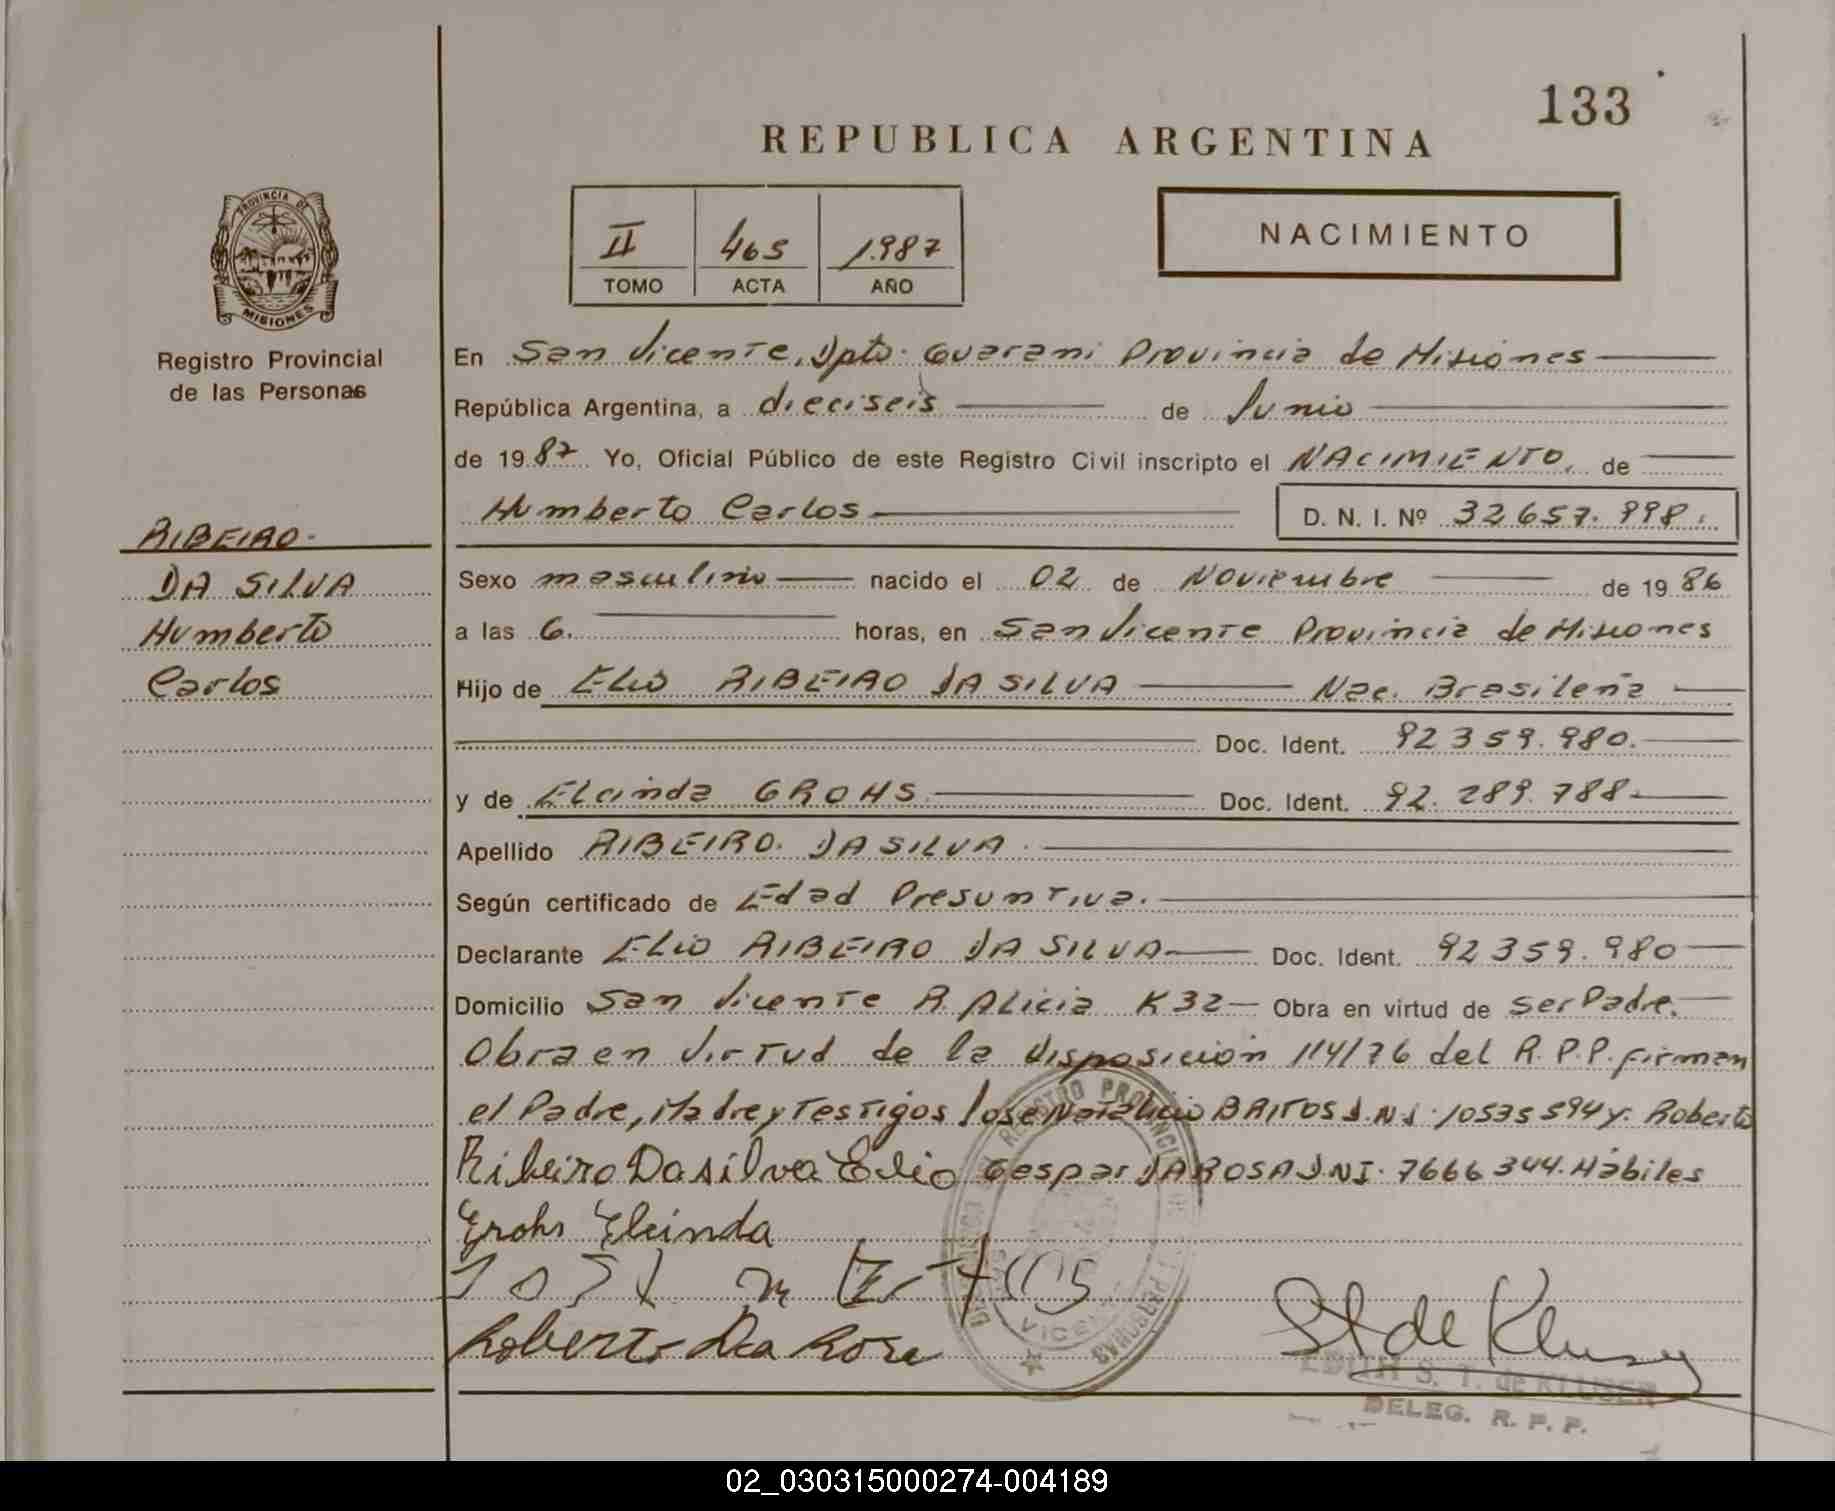 133
REPUBLICA ARGENTINA
PROVINCIA DE
MISIONES
Registro Provincial
de las Personas
II 465 1.987
TOMO ACTA AÑO
NACIMIENTO
En San Vicente, Dpto. Guarani Provincia de Misiones
República Argentina, a dieciseis de Junio
de 1987 Yo, Oficial Público de este Registro Civil inscripto el NACIMIENTO. de
Humberto Carlos D. N. I. Nº 32657.998.
RIBEIRO.
DA SILVA
Humberto
Carlos
Sexo masculino nacido el 02 de Noviembre de 1986
a las 6. horas, en San Vicente Provincia de Misiones
Hijo de Elio RIBEIRO DA SILVA Nac. Brasileña
Doc. Ident. 92359.980.
y de Elcinda GROHS Doc. Ident. 92.289.788
Apellido RIBEIRO. DA SILVA.
Según certificado de Edad Presuntiva.
Declarante Elio RIBEIRO DA SILVA Doc. Ident. 92359.980
Domicilio San Vicente P. Alicia K 32 Obra en virtud de ser Padre.
Obra en virtud de la Disposición 114/76 del R.P.P. firman
el Padre, Madre y Testigos Jose Natalicio BRITOS D.N.I. 10535594 y. Roberto
Ribeiro Dasilva Elio Gaspar DA ROSA DNI. 7666344. Hábiles
Grohs Elcinda
Roberto Da Rosa
St de Kluser
EDITH S. T. de KLUSER
DELEG. R. P. P.
02_030315000274-004189